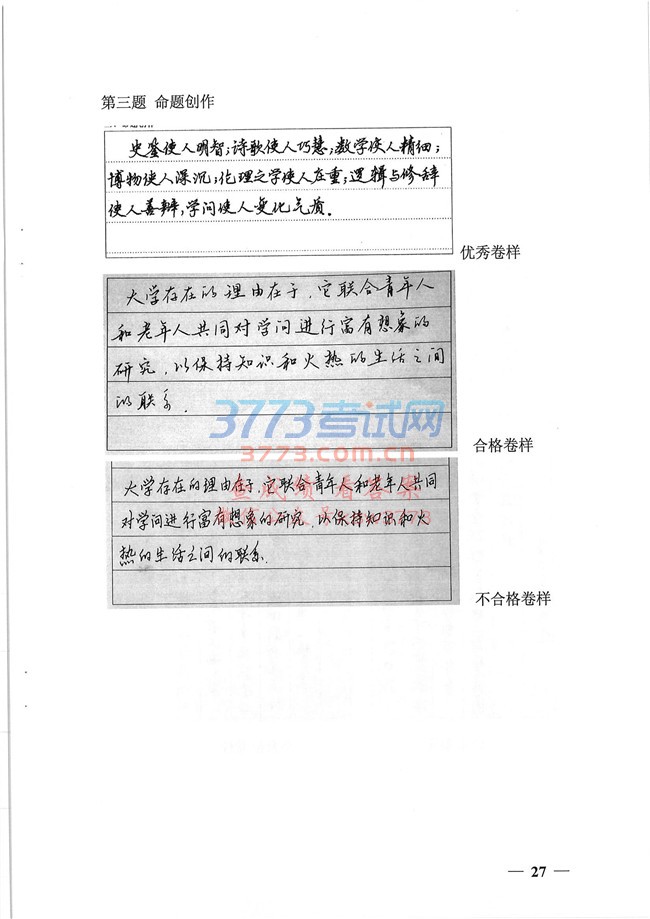 第三题 命题创作
史鉴使人明智;诗歌使人巧慧;数学使人精细;
博物使人深沉;伦理之学使人庄重;逻辑与修辞
使人善辩;学问使人变化气质.
优秀卷样
大学存在的理由在于,它联合青年人
和老年人共同对学问进行富有想象的
研究,以保持知识和火热的生活之间
的联系.
3773考试网
3773.com.cn
合格卷样
大学存在的理由在于,它联合青年人和老年人共同
对学问进行富有想象的研究,以保持知识和火
热的生活之间的联系.
不合格卷样
— 27 —